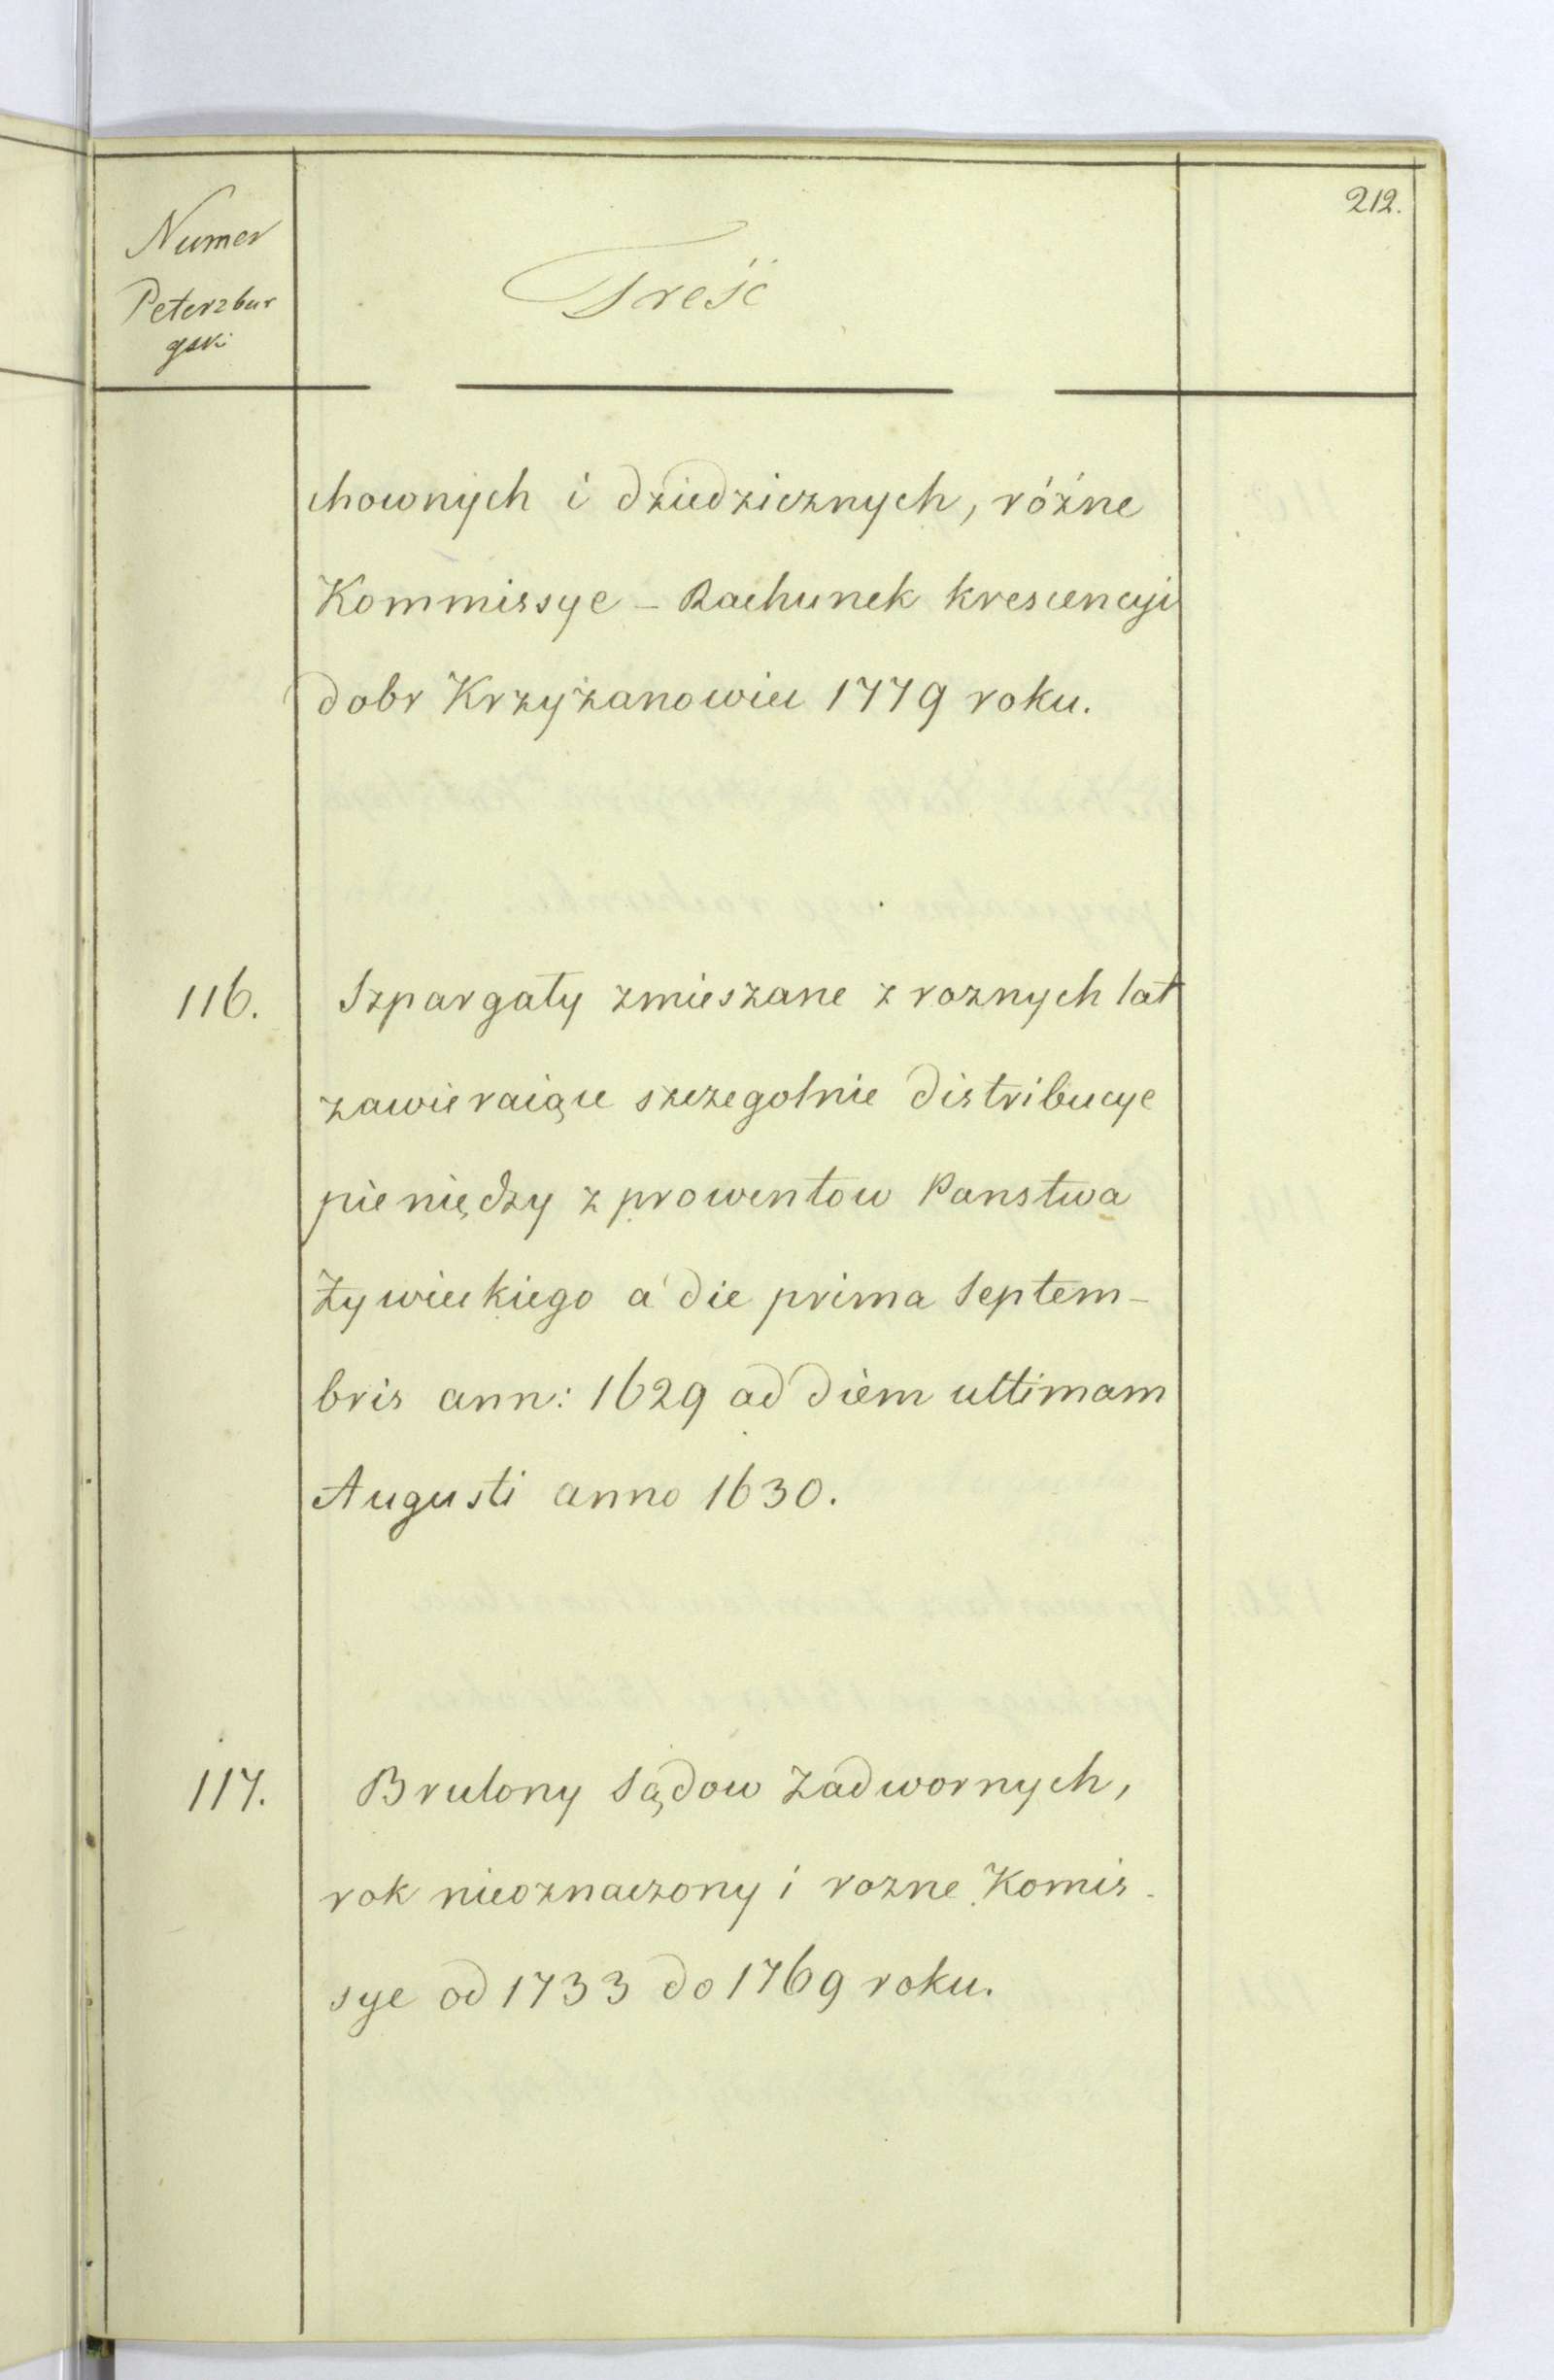 212.
Numer
Peterzbur
gski
Treść
chownych i dziedzicznych, różne
Kommissye – Rachunek krescencyi
dobr Krzyżanowic 1779 roku.
116.
Szpargały zmieszane z roznych lat
zawieraiące szczegolnie distribucye
pieniędzy z prowentow Panstwa
Żywieckiego a die prima Septem-
bris ann: 1629 ad diem ultimam
Augusti anno 1630.
117.
Brulony Sądow Zadwornych,
rok nieoznaczony i rozne Komis-
sye od 1733 do 1769 roku.